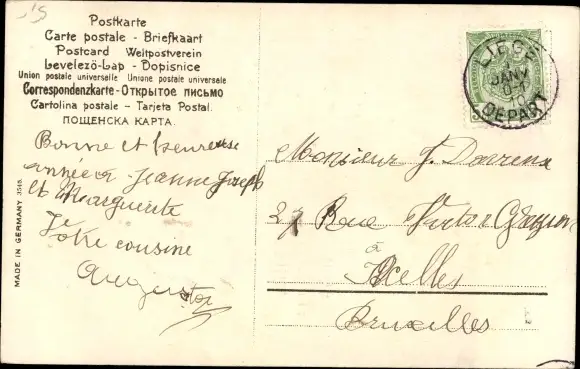 Postkarte
Carte postale - Briefkaart
Postcard Weltpostverein
Levelező-Lap - Dopisnice
Union postale universelle Unione postale universale
Correspondenzkarte - Открытое письмо
Cartolina postale - Tarjeta Postal.
ПОЩЕНСКА КАРТА.
Bonne et heureuse
année à Jeanne Joseph
et Marguerite
Votre cousine
LIEGE
JANV
DEPART
Monsieur J.
Rue Victor
à
Ixelles
Bruxelles
MADE IN GERMANY